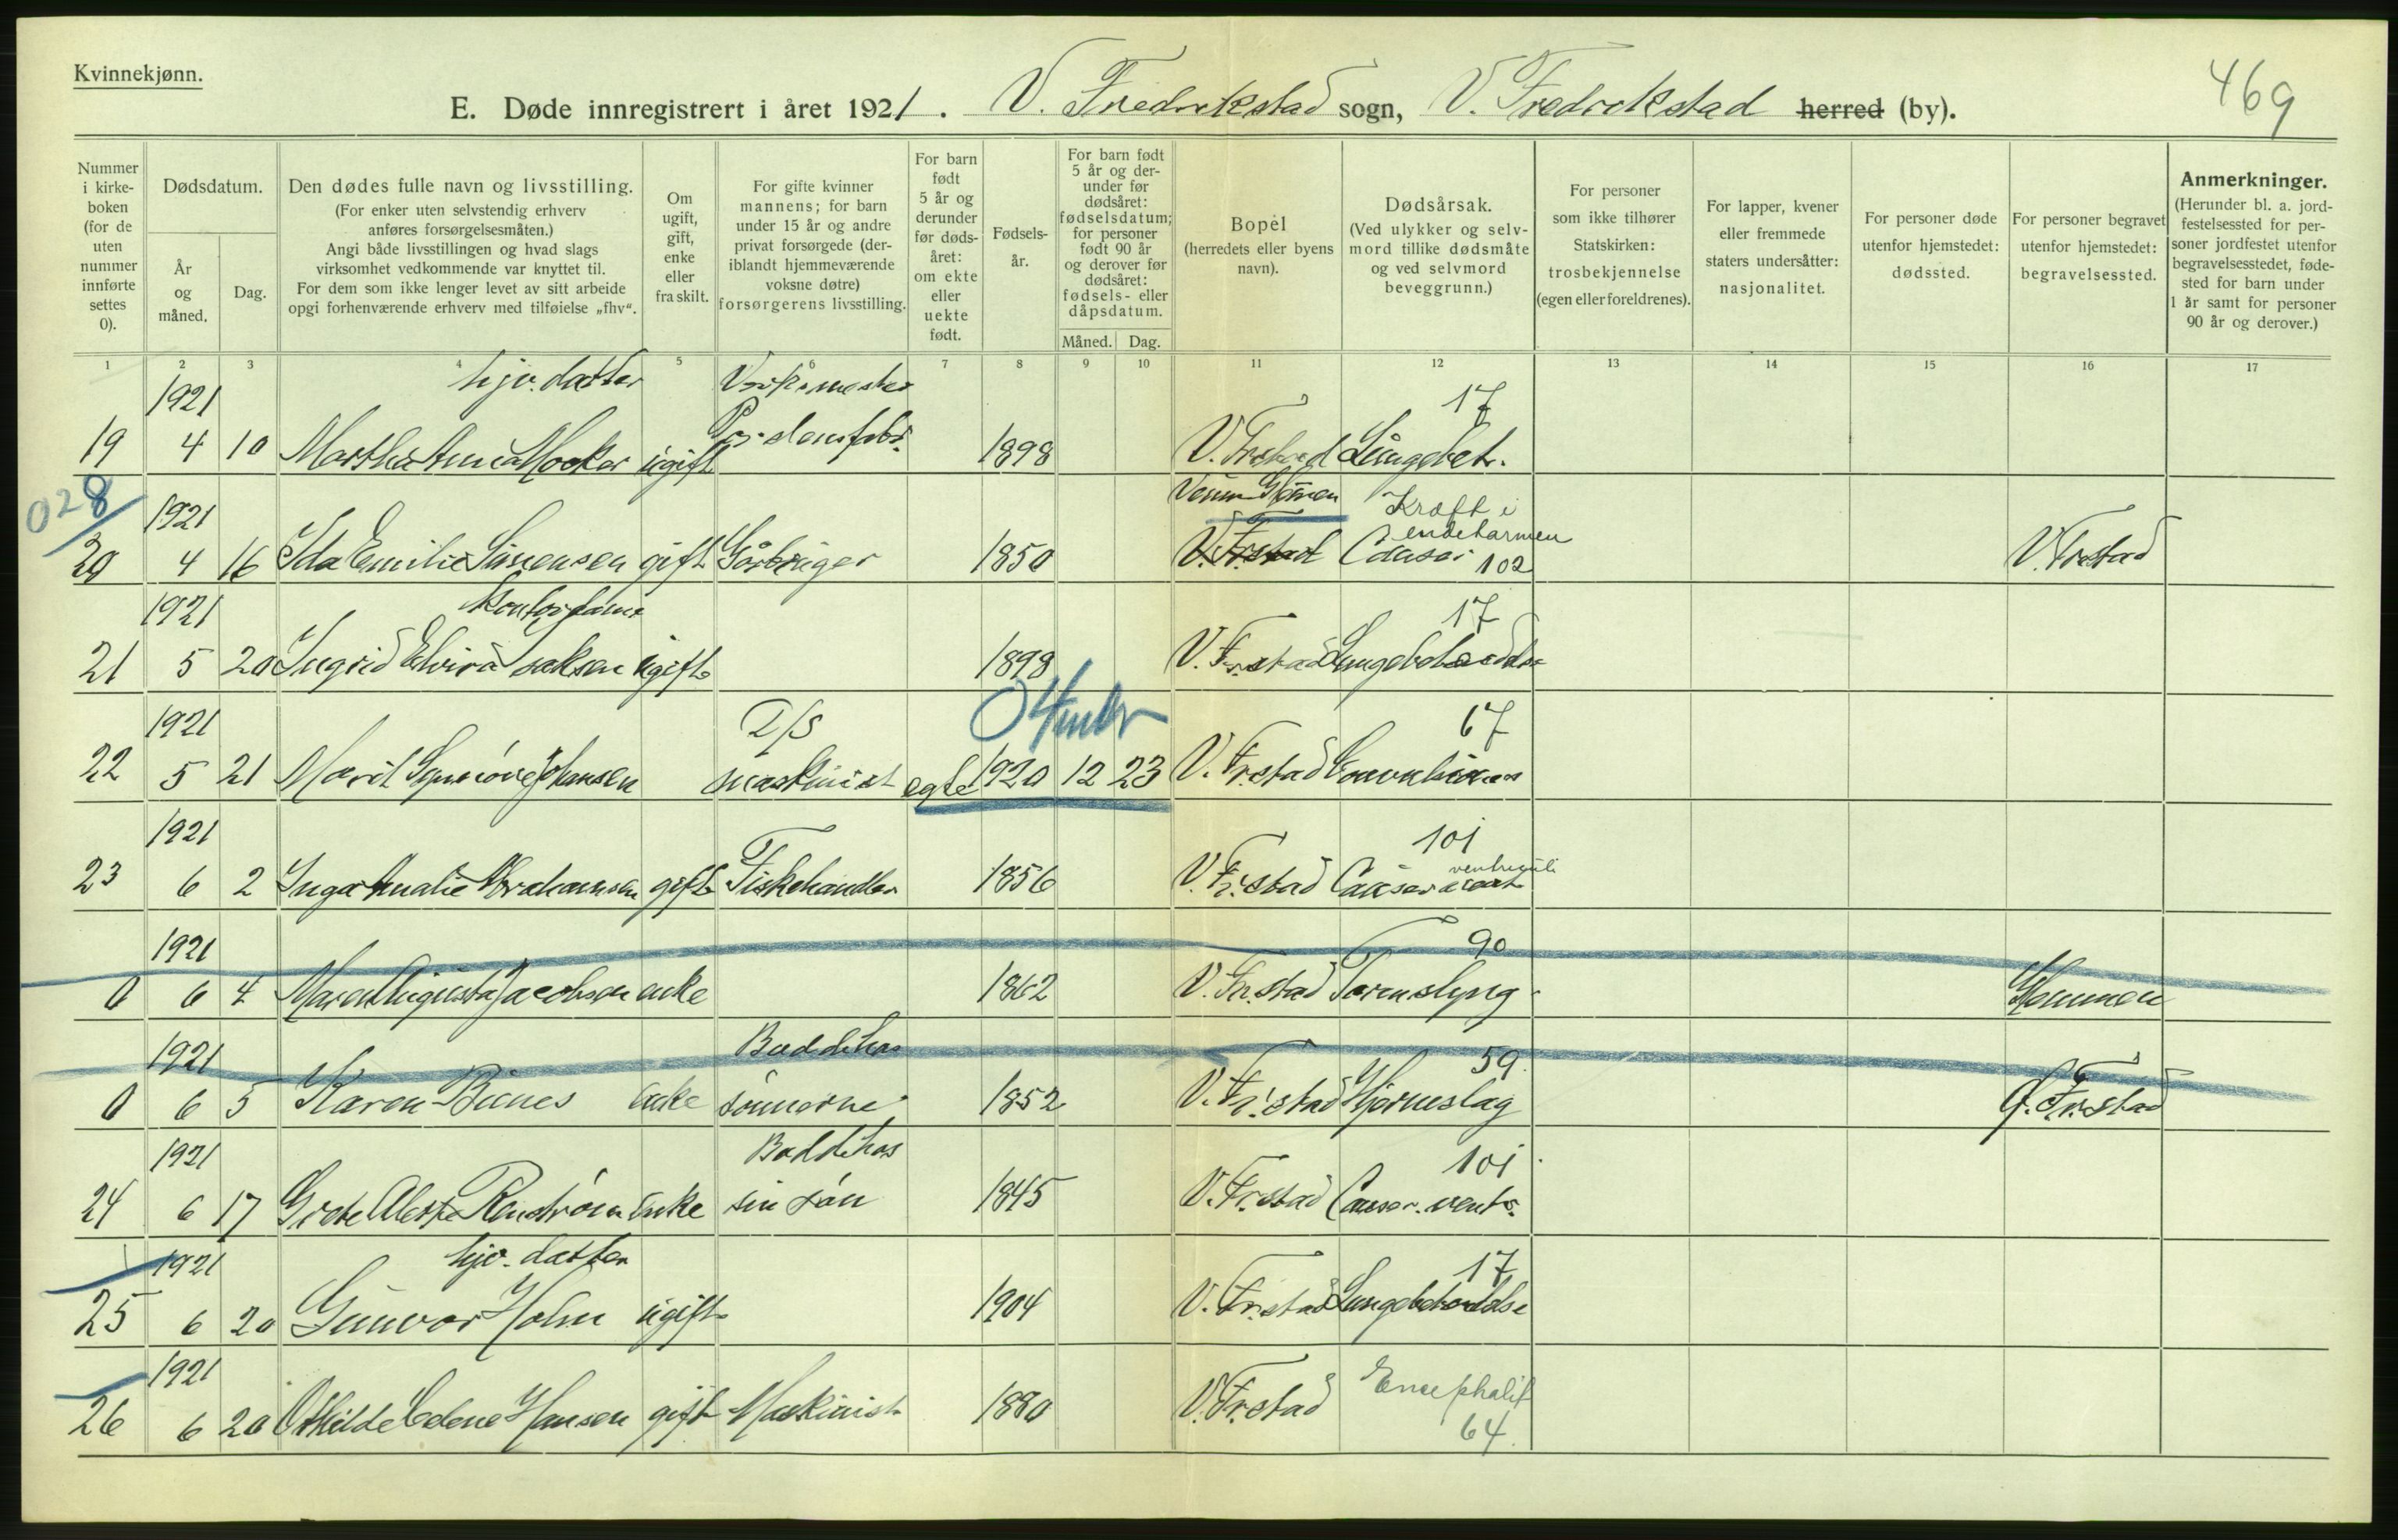 Kvinnekjønn.
469
E. Døde innregistrert i året 1921. V. Fredrikstad sogn, V. Fredrikstad herred (by).
Nummer i kirke-boken (for de uten nummer innførte settes 0).
Dødsdatum.
År og måned.
Dag.
Den dødes fulle navn og livsstilling.
(For enker uten selvstendig erhverv anføres forsørgelsesmåten.)
Angi både livsstillingen og hvad slags virksomhet vedkommende var knyttet til.
For dem som ikke lenger levet av sitt arbeide opgi forhenværende erhverv med tilføielse „fhv".
Om ugift, gift, enke eller fraskilt.
For gifte kvinner mannens; for barn under 15 år og andre privat forsørgede (der-iblandt hjemmeværende voksne døtre) forsørgerens livsstilling.
For barn født 5 år og derunder før døds-året: om ekte eller uekte født.
Fødsels-år.
For barn født 5 år og der-under før dødsåret: fødselsdatum; for personer født 90 år og derover før dødsåret: fødsels- eller dåpsdatum.
Måned. Dag.
Bopel (herredets eller byens navn).
Dødsårsak.
(Ved ulykker og selv-mord tillike dødsmåte og ved selvmord beveggrunn.)
For personer som ikke tilhører Statskirken: trosbekjennelse (egen eller foreldrenes).
For lapper, kvener eller fremmede staters undersåtter: nasjonalitet.
For personer døde utenfor hjemstedet: dødssted.
For personer begravet utenfor hjemstedet: begravelsessted.
Anmerkninger.
(Herunder bl. a. jord-festelsessted for per-soner jordfestet utenfor begravelsesstedet, føde-sted for barn under 1 år samt for personer 90 år og derover.)
1 2 3 4 5 6 7 8 9 10 11 12 13 14 15 16 17
1921 hjv. datter Verksmester 17
19 4 10 Martha ugift 1898 V. Frstad Lungebet.
028
1921 Glemmen Kræft i endetarmen
20 4 16 Ida Emilie Simensen gift 1850 V. Frstad Cancer 102 V. Frstad
1921 Kontordame 17
21 5 20 Ingrid Elvira Isaksen ugift 1898 V. Frstad Lungebetændelse
1921 D/S 67
22 5 21 Marit Synnöve Johansen maskinist egte 1920 12 23 V. Frstad
1921 101
23 6 2 Inga Amalie Abrahamsen gift Fiskehandler 1856 V. Frstad Cancer ventriculi
1921 90
0 6 4 Maren Augusta Jacobsen enke 1862 V. Frstad Tarmslyng Glemmen
1921 Bodde hos 59
0 6 5 Karen enke sönnerne 1852 V. Frstad Hjerneslag Frstad
1921 Bodde hos 101
24 6 17 Grete Renström enke sin sön 1845 V. Frstad Cancer. ventr.
1921 hjv. datter 17
25 6 20 Gunvor Holm ugift 1904 V. Frstad Lungebetændelse
1921 Encephalit
26 6 20 Othilde Hansen gift Maskinist 1880 V. Frstad 64.